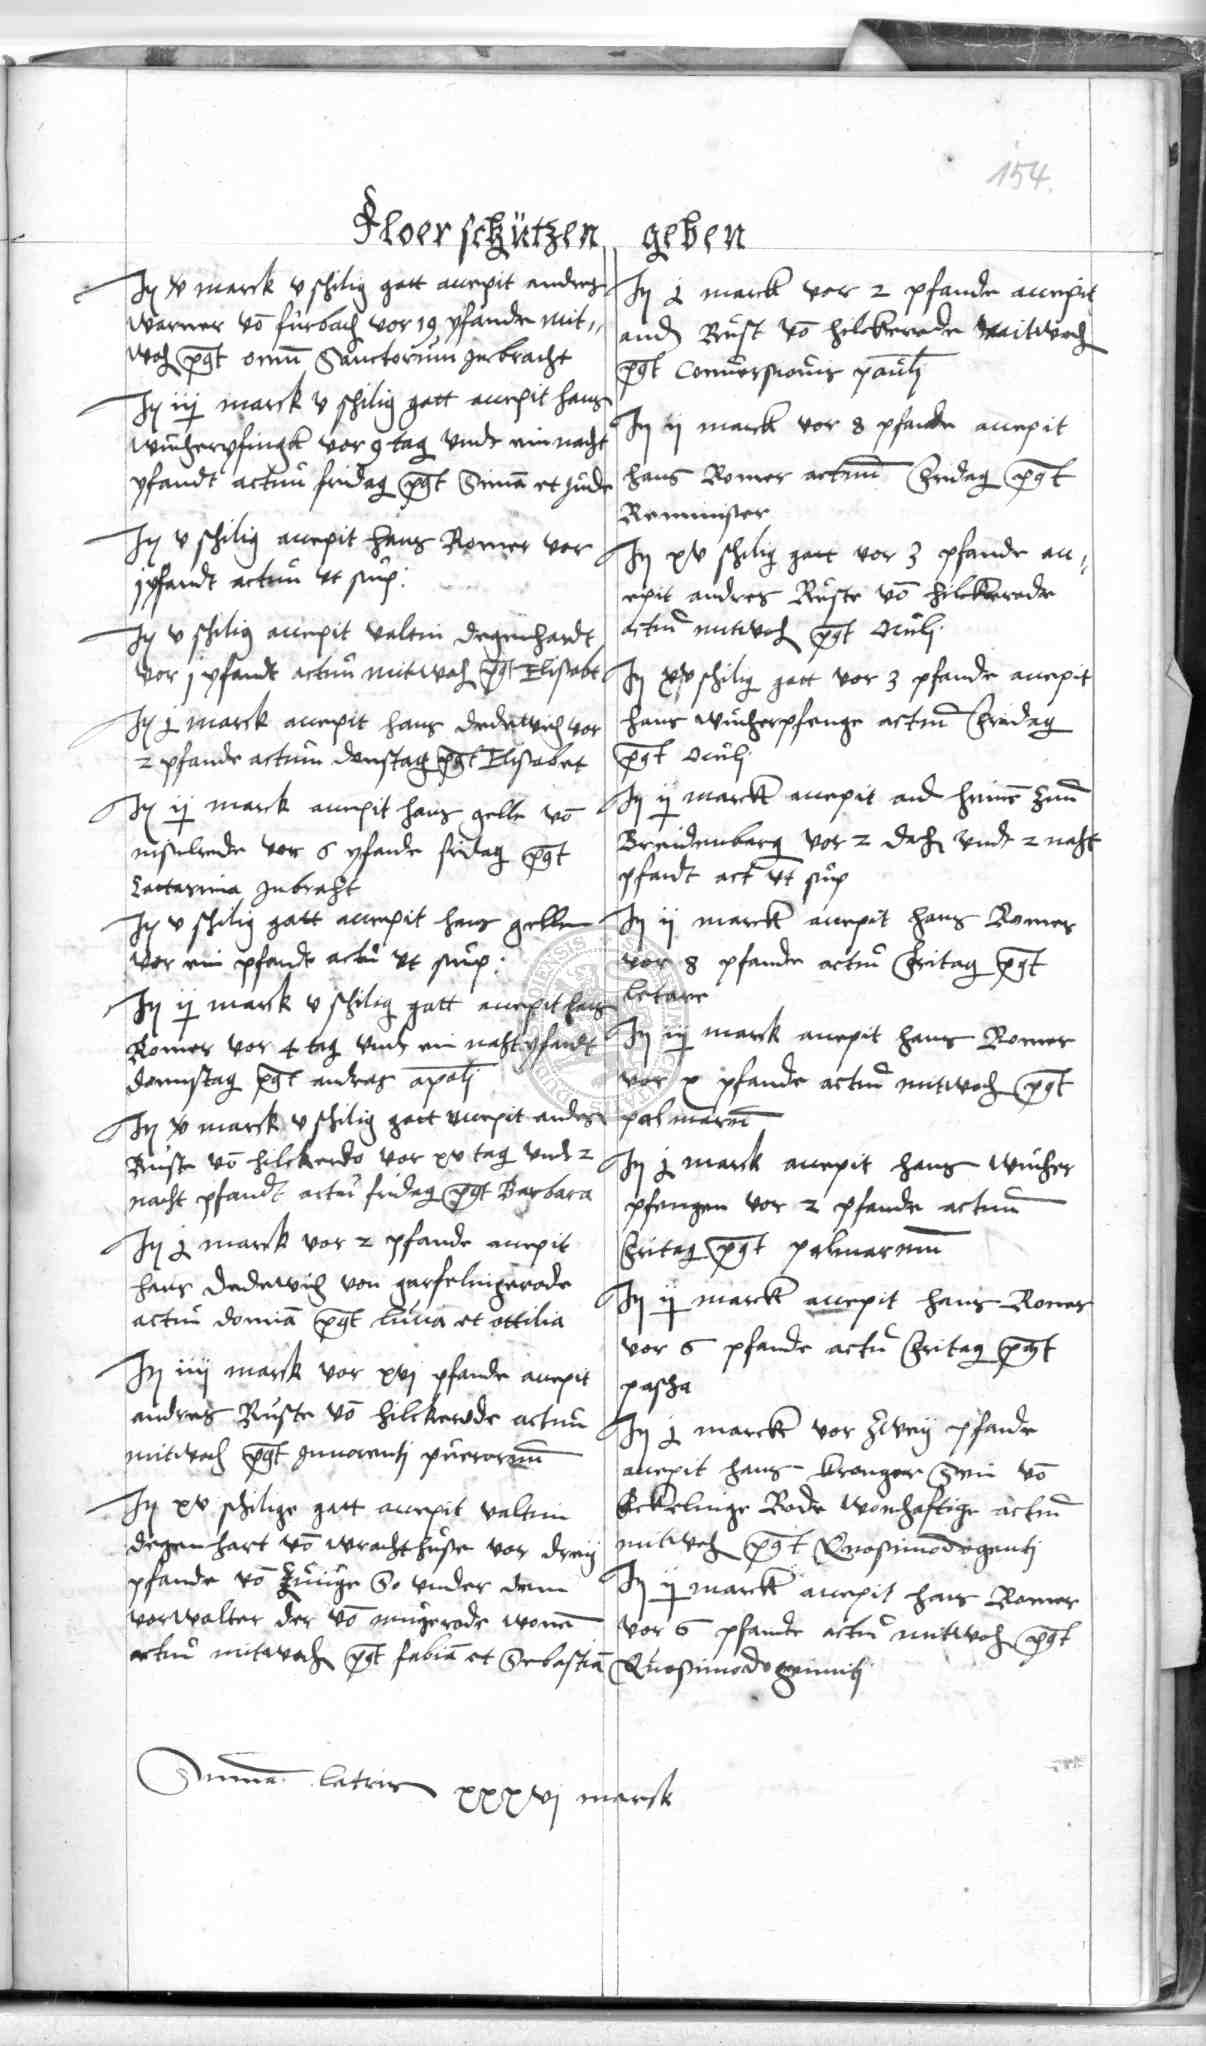 154.
Floer schützen geben
Itz v marck v schilig gatt accepit andres
Warner vō fūrbach vor 19 pfande mit„
woch pgt omn̄ Sanctorūm Inbracht
Itz iij marck v schilig gatt accepit hans
wūcherpfingk vor 9 tag vnde ein nacht
pfandt actum fridag pgt Simā et Jude
Itz v schilig accepit Hans Romer vor
j pfandt actum ut sup:
Itz v schilig accepit valtin degenhardt
vor j pfandt actum mitwoch pgt Elisabt
Itz j marck accepit hans dedewich vor
2 pfande actum donstag pgt Elisabet
Itz ij marck accepit hans gelle vō
vor 6 pfande fridag pgt
Catterina Inbracht
Itz v schilig gatt accepit hans gellen
vor ein pfandt actū ut sup:
Itz ij marck v schilig gatt accepit hans
Romer vor 4 tag vnde ein nacht pfandt
donnstag pgt andreas apostlj
Itz v marck v schilig gatt accepit andres
Rūste vō hilckerdo vor xv tag vnde 2
nacht pfandt actū fridag pgt Barbara
Itz j marck vor 2 pfande accepit
hans dedewich von garselingerode
actum domīa pgt lūcia et ottilia
Itz iiij marck vor xvj pfande accepit
andreas Rūste vō hilckerode actum
mitwoch pgt Innocentj pūerorūm
Itz xv schilige gatt accepit valtin
degenhart vō wrachthūse vor dreij
pfande vō So vnder dem
vorwalter der vō mingerode wonē
actum mitwoch pgt fabiā et Sebastiā
Itz j marck vor 2 pfande accepit
andr Rūst vō hilckerode Mitwoch
pgt Conuersionis paulj
Itz ij marck vor 8 pfande accepit
hans Romer actum fridag pgt
Reminister
Itz xv schilig gatt vor 3 pfande ac„
cepit andres Rūste vō hilckerode
actum mitwoch pgt Oculj
Itz xv schilig gatt vor 3 pfande accepit
hans wūcherpfenge actum fridag
pgt oculj
Itz ij marck accepit and heinē zum
Breidenbarg vor 2 dach vnde 2 nacht
pfandt act ut sup
Itz ij marck accepit hans Romer
vor 8 pfande actum fritag pgt
letare
Itz iij marck accepit hans Romer
vor x pfande actum mitwoch pgt
palmarum
Itz j marck accepit hans wūcher
pfengen vor 2 pfande actum
fritag pgt palmarum
Itz ij marck accepit hans Romer
vor 6 pfande actū fritag pgt
pascha
Itz j marck vor zweij pfande
accepit hans kronger vō
Eckelinge Rode wonhaftige actum
mitwoch pgt Quasimodogentj
Itz ij marck accepit hans Romer
vor 6 pfande actum mitwoch pgt
Quasimodogenitj
Summa latris xxxvj marck